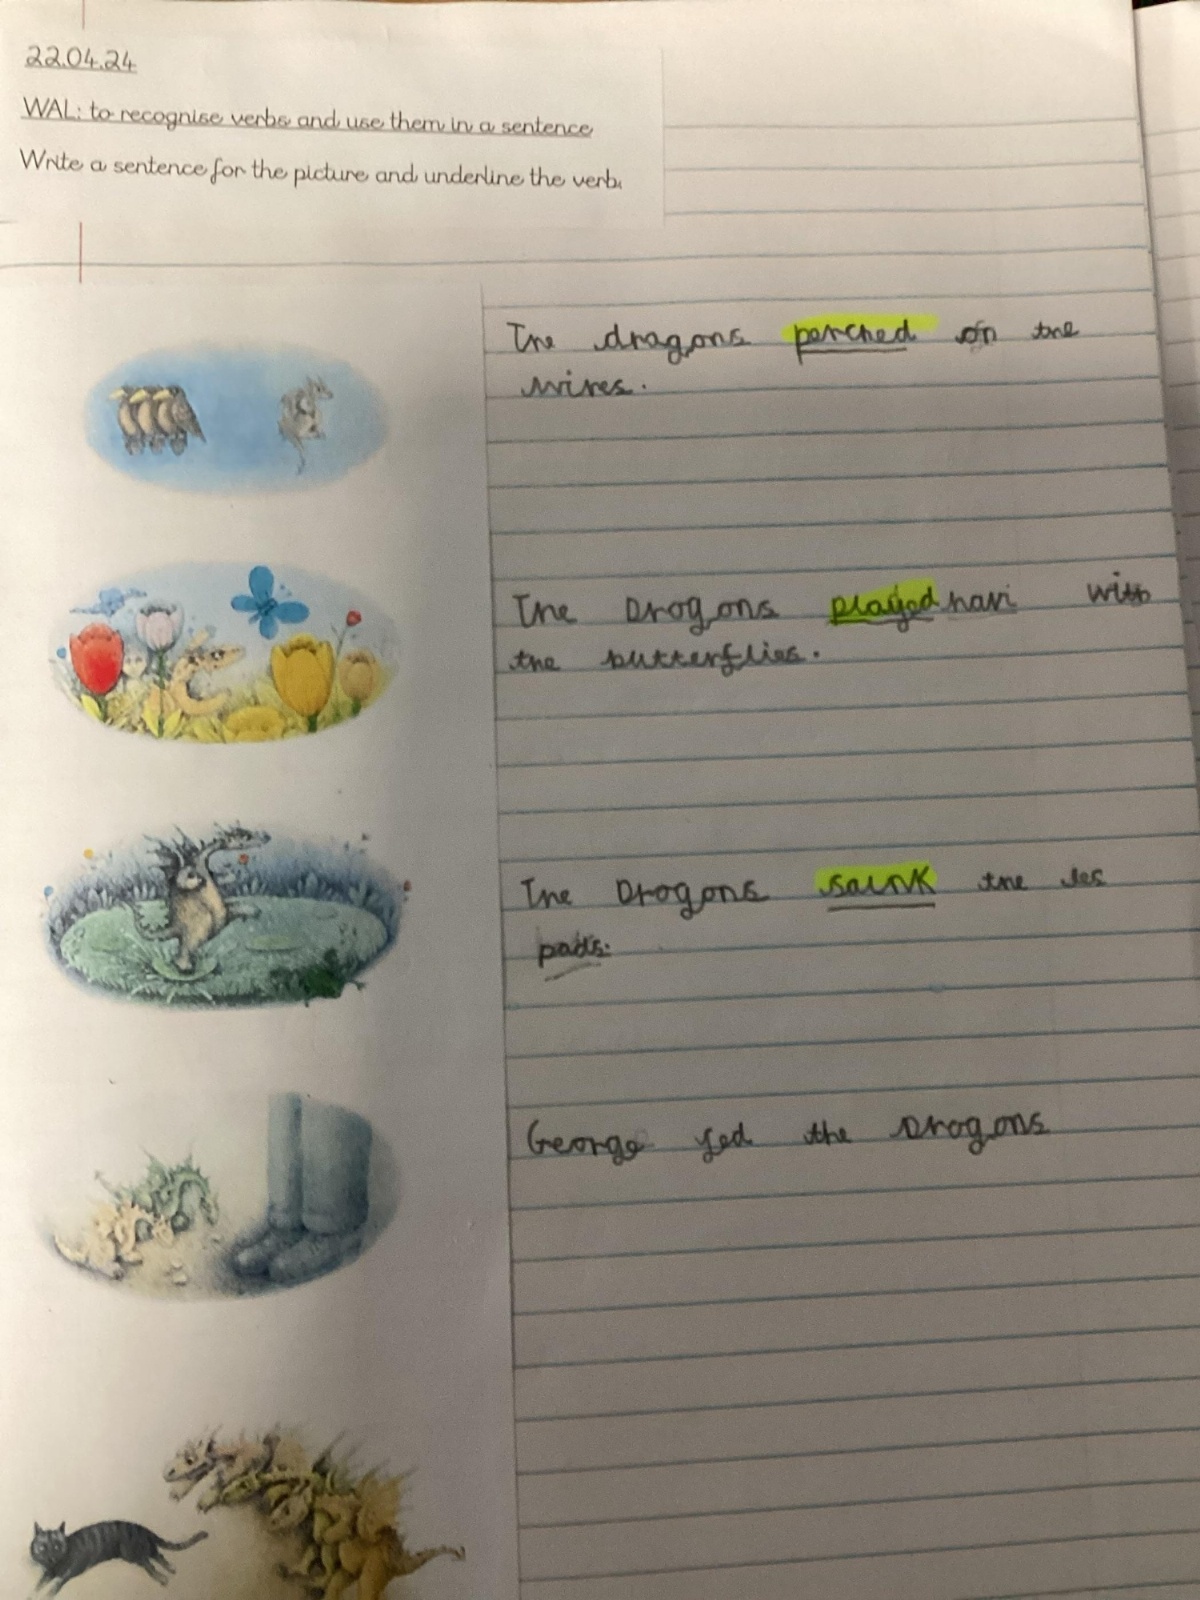 22.04.24
WAL: to recognise verbs and use them in a sentence
Write a sentence for the picture and underline the verb.
The dragons perched on the
wires.
The Dragons played havi with
the butterflies.
The Dragons saunk the les
pads.
George fed the Dragons